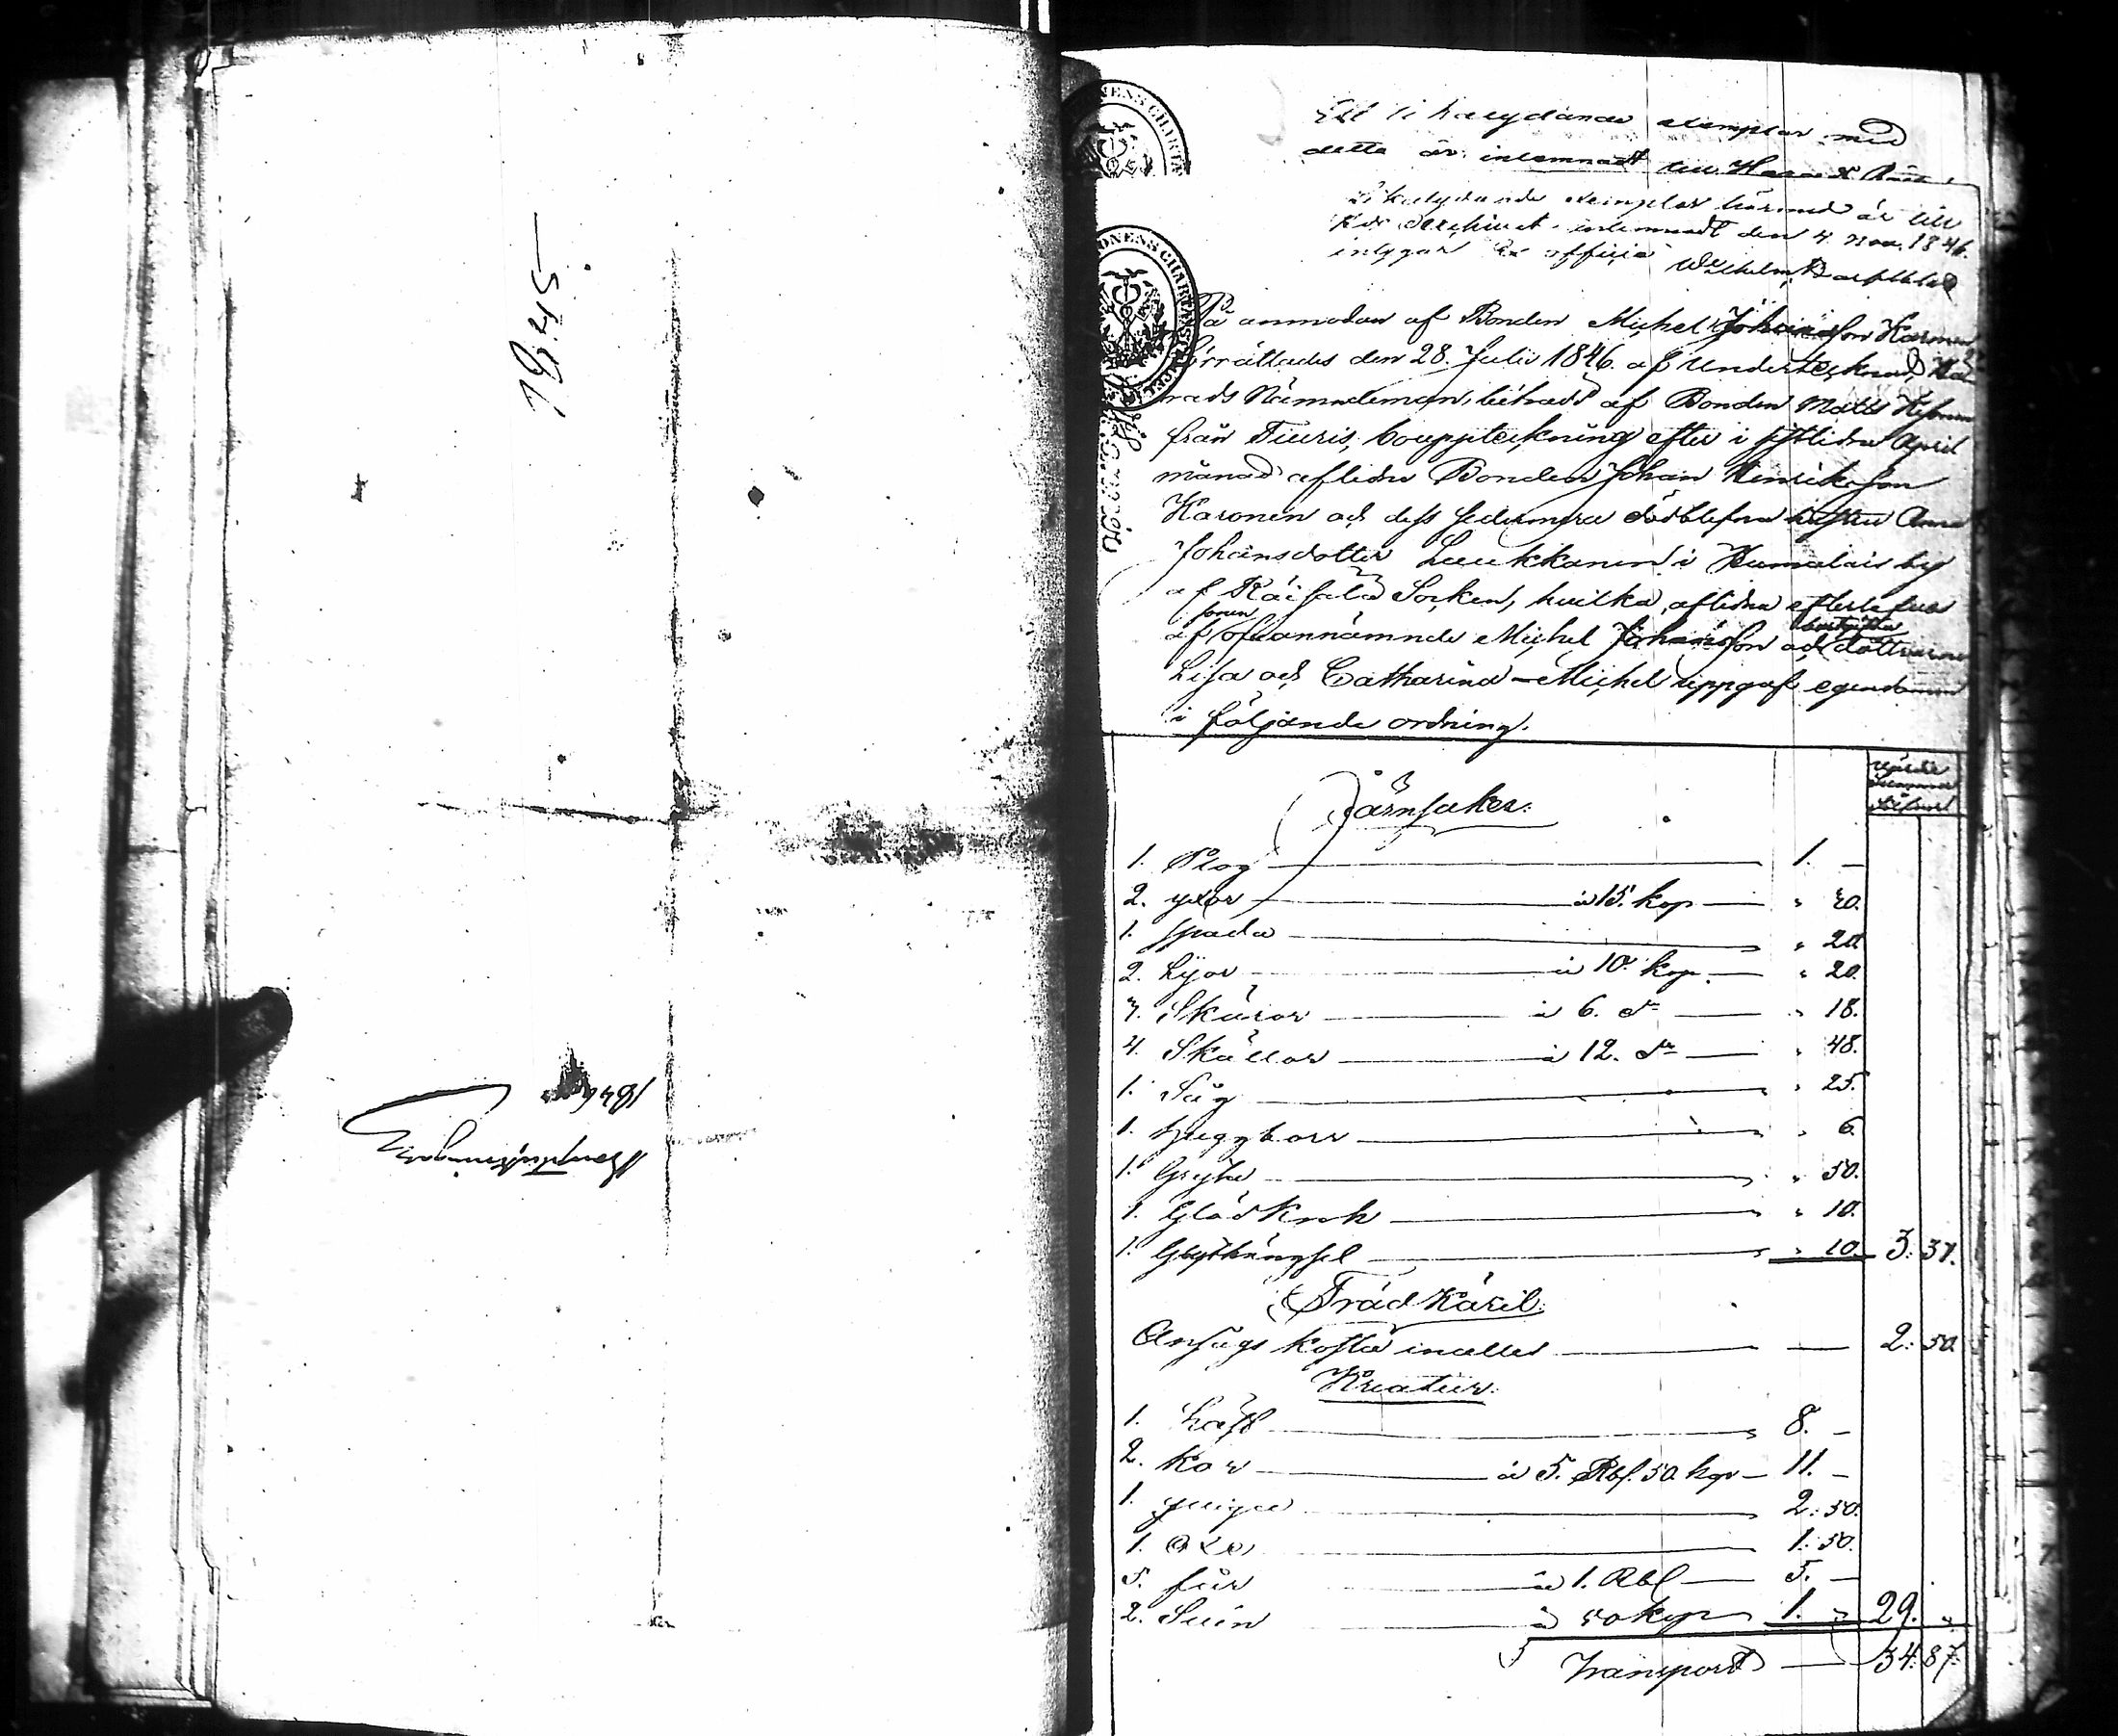 7945
1846
Bouppteckning
Ett likalydande exemplar med
detta är inlemnadt till
Likalydande exemplar härmed är till
inlemnadt den 4 Nov. 1846.
intygar Ex officio Wilhelm
På anmodan af Bonden Michel Johansson Karonen
förrättades den 28. Julii 1846. af Undertecknad, Hä-
rads Nämndeman, biträdd af Bonden Matts
från Tiuris, bouppteckning efter i sistlidne April
månad aflidne Bonden Johan Henriksson
Karonen och dess sedermera dödblefna hustru Anna
Johansdotter Luukkanen i Humalais by
af Räisälä Socken, hvilka aflidna efterlefvas
sonen
af ofvannämnde Michel Johansson och döttrarne
Lisa och Catharina – Michel uppgaf egendomen
i följande ordning.
Värde
Silfver
Järnsaker.
1. Plog 1. –
2. yxor à 15. kop " 30.
1. spada " 20.
2. Lijor à 10. kop " 20.
3. Skäror à 6. do " 18.
4. Skällor à 12. do " 48.
1. Såg " 25.
1. huggborr " 6.
1. Gryta " 50.
1. Glödkrok " 10.
1. Grythängsel " 10. 3. 37.
Trädkäril.
Ansågs kosta inalles 2. 50.
Kreatur.
1. häst 8. –
2. Kor à 5. Rbl. 50. kop – 11. –
1. quiga 2. 50.
1. oxe 1. 50.
5. får à 1. Rbl 5. –
2. Svin à 50 kop 1. " 29. "
Transport 34. 87.